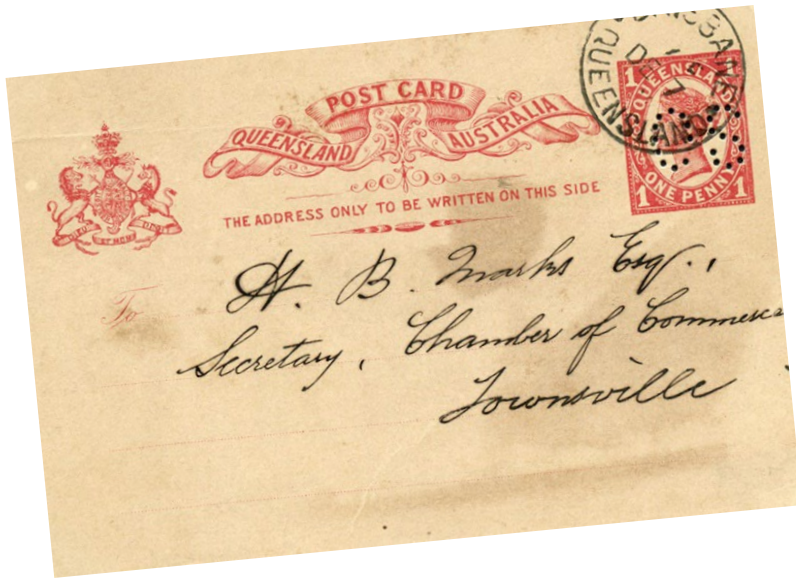 POST CARD
QUEENSLAND AUSTRALIA
THE ADDRESS ONLY TO BE WRITTEN ON THIS SIDE
QUEENSLAND
ONE PENNY
1 1
1 1
QUEENSLAND
DE
7
DIEU ET MON DROIT
To
H. B. Marks Esq.,
Secretary, Chamber of Commerce
Townsville